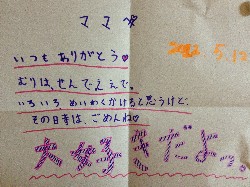 ママへ
2002 5.12
いつもありがとう♡
むりは、せんでええで。
いろいろ めいわくかけると思うけど、
その時は、ごめんね♡
大好きだよっ